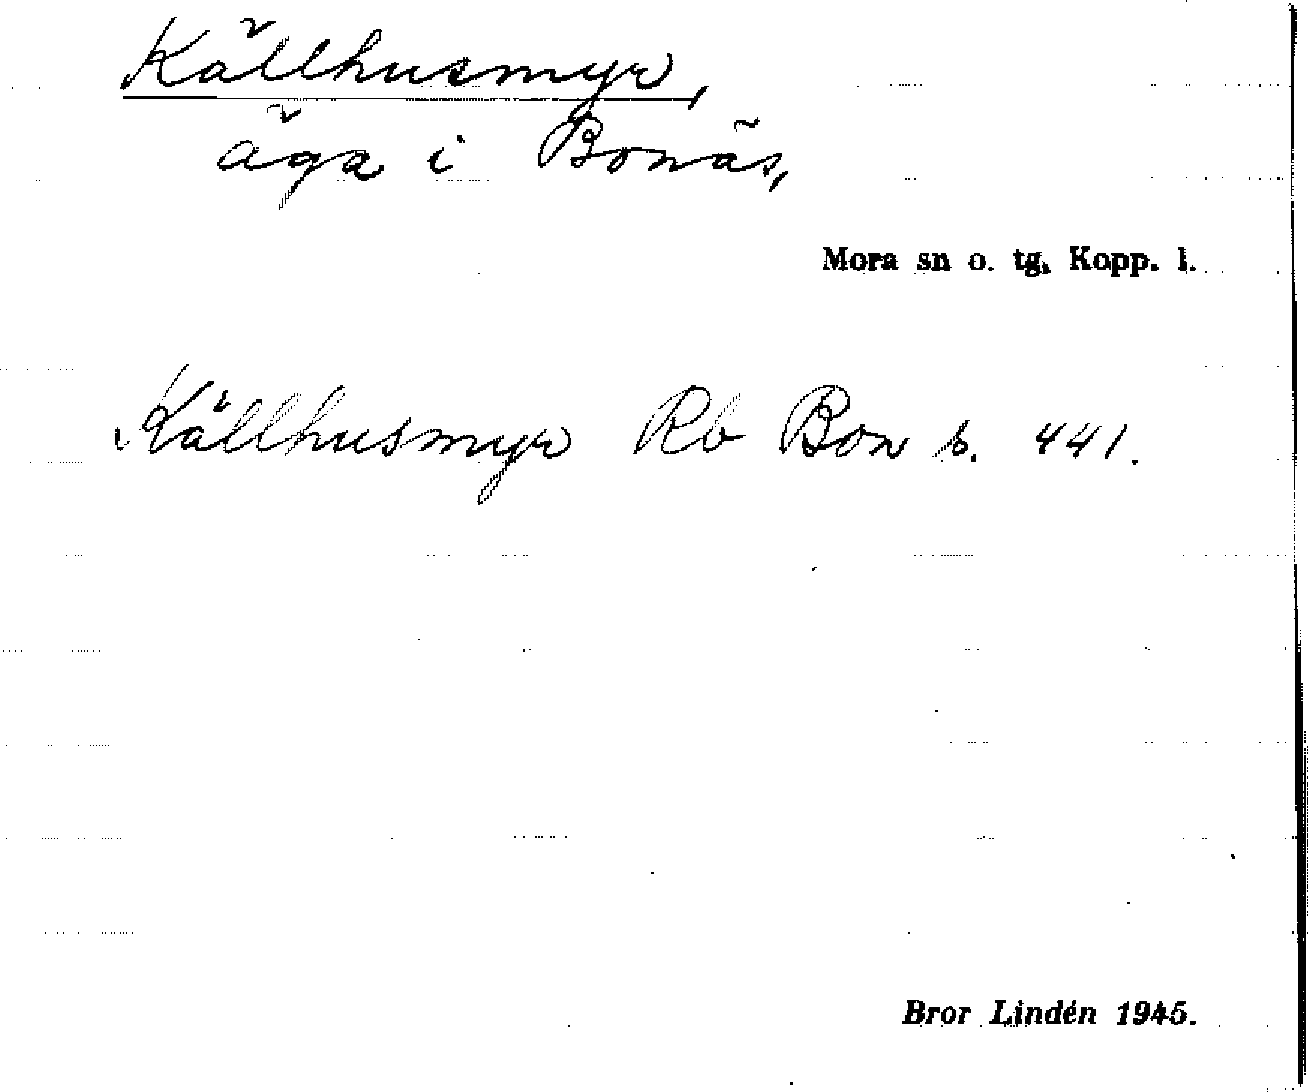 Källhusmyr,
äga i Bonäs,
Mora sn o. tg. Kopp. l.
Källhusmyr Rb Bon s. 441.
Bror Lindén 1945.